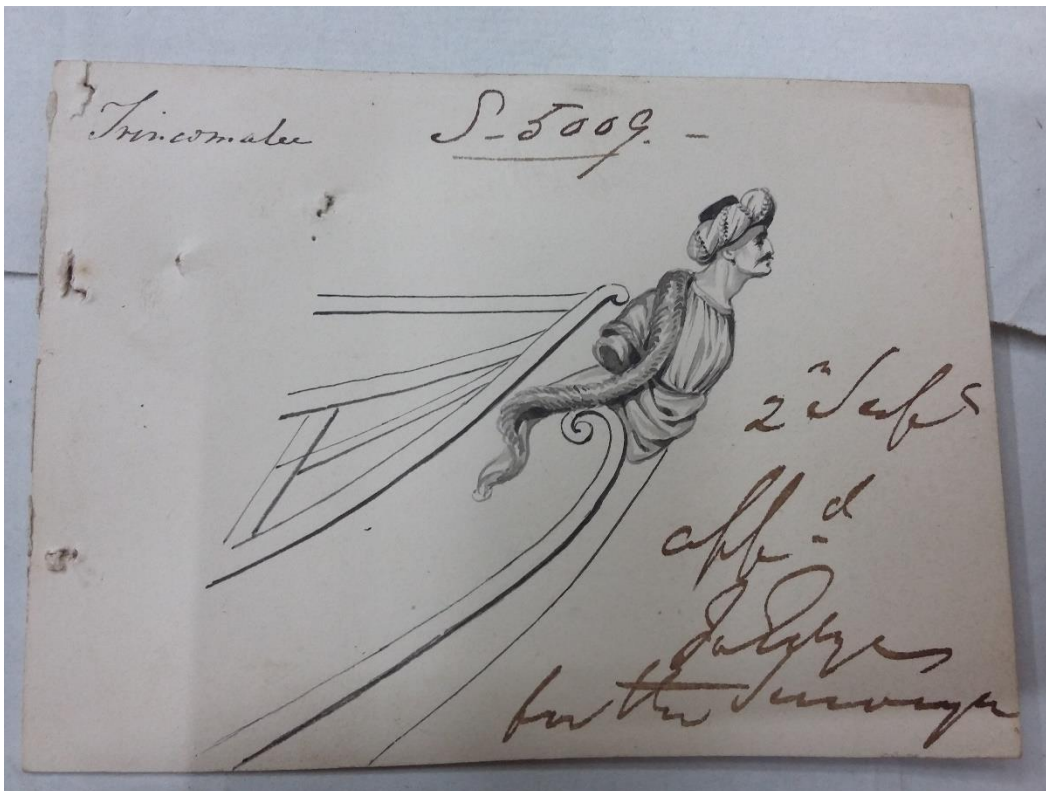 Trincomalee
S-5009.-
2
app d
for the Surveyor